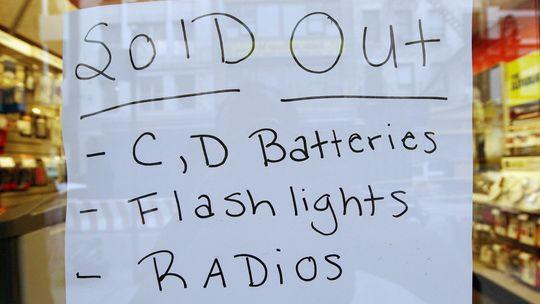 SOlD Out
- C, D Batteries
- Flashlights
- RADios